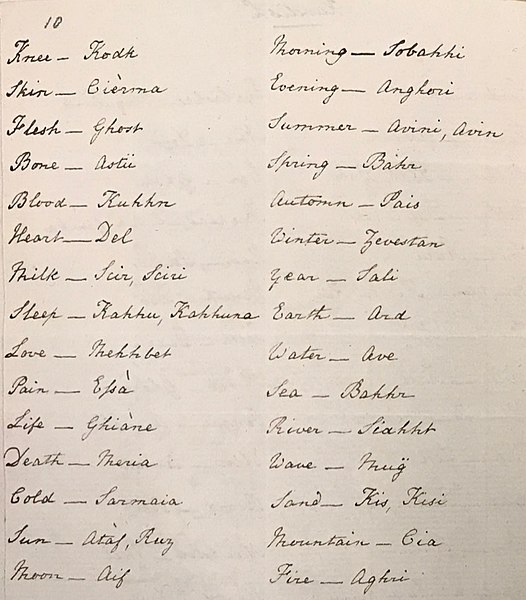 10
Knee — Kodk
Skin — Cièrma
Flesh — Ghost
Bone — Astii
Blood — Kuhhn
Heart — Del
Milk — Scir, Sciri
Sleep — Kahhu, Kahhuna
Love — Mehhbet
Pain — Efsà
Life — Ghiàne
Death — Meria
Cold — Sarmaia
Sun — Atàf, Ruz
Moon — Aif
Morning — Sobahhi
Evening — Anghori
Summer — Avini, Avin
Spring — Bahr
Automn — Pais
Winter — Zevestan
Year — Sali
Earth — Ard
Water — Ave
Sea — Bahhr
River — Sciahht
Wave — Muÿ
Sand — Kis, Kisi
Mountain — Cia
Fire — Aghri